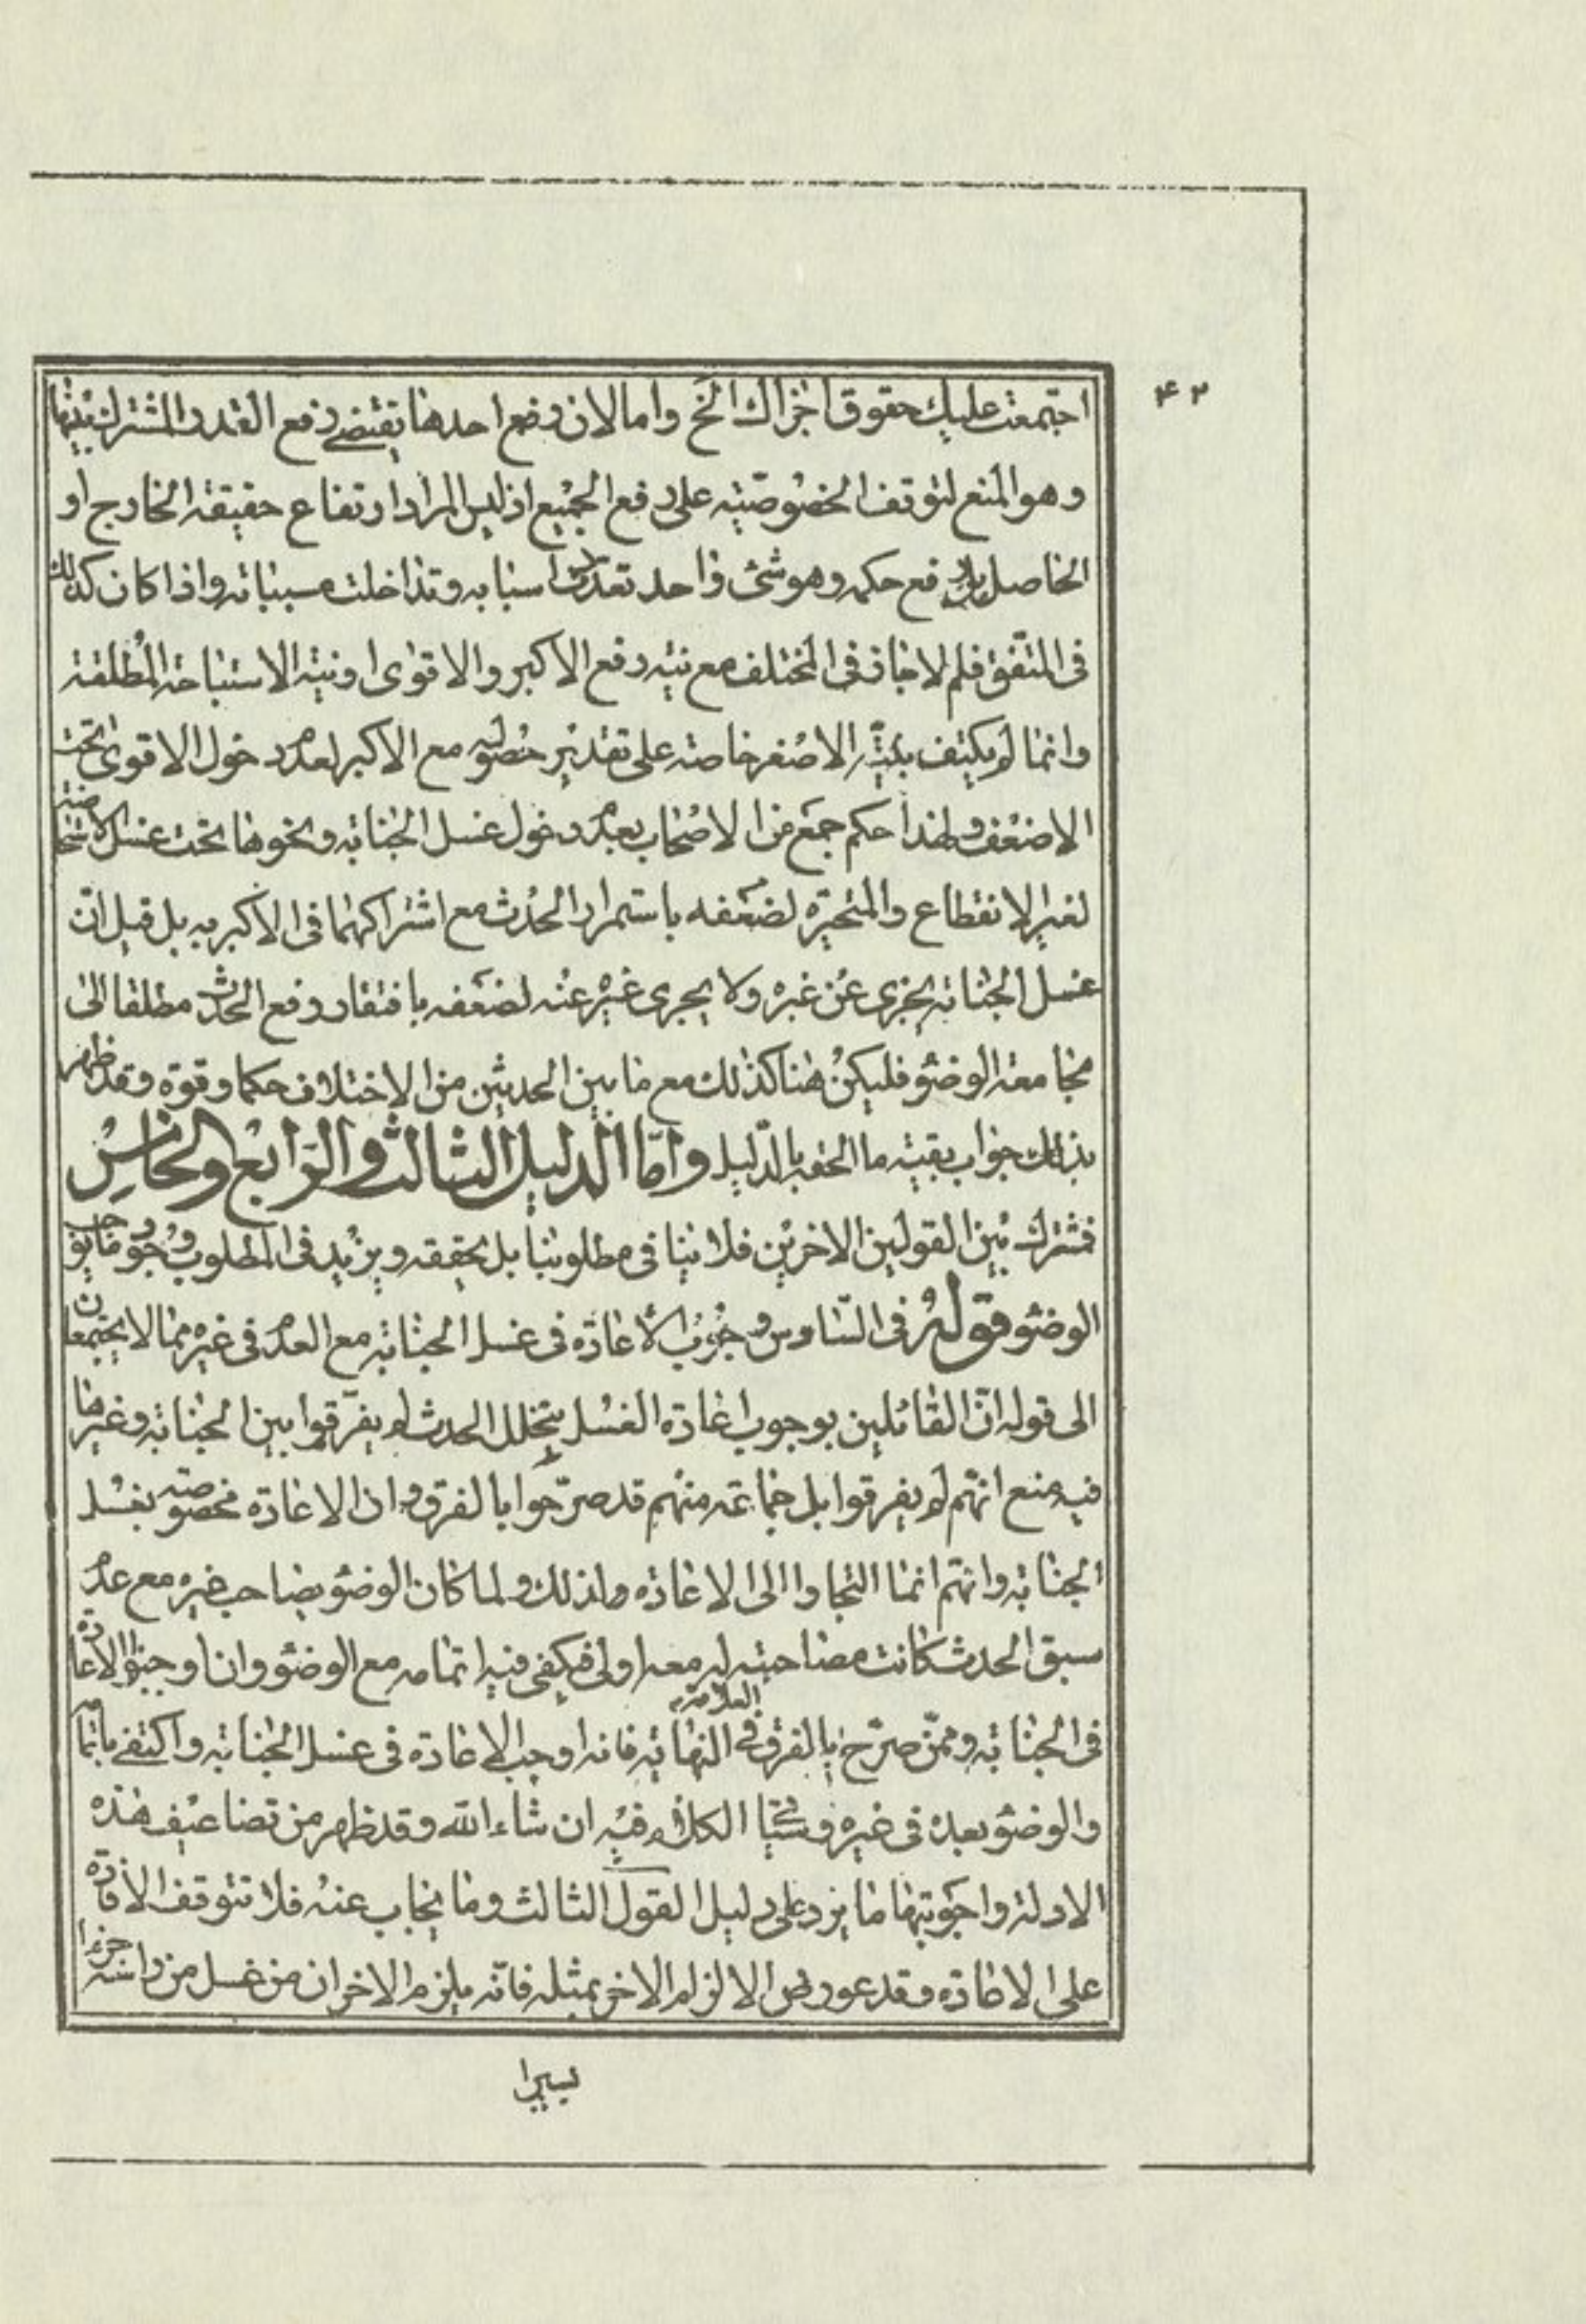 ۴۲
اجتمعت عليك حقوق اجزاك الخ واما لان رفع احدها يقتضى رفع القدر المشترك بينها
وهو المنع لتوقف الخصوصيّة على رفع الجميع اذ ليس المراد ارتفاع حقيقة الخارج او
الحاصل بل رفع حكمه وهو شئ واحد تعدّدت اسبابه وتداخلت مسبباته واذا كان كذلك
فى المتّفق فلم لا جاز فى المختلف مع نيّة رفع الاكبر والاقوى او نيّة الاستباحة المُطلقة
وانما لم يكتف بنيّة الاصغر خاصة على تقدير حصوله مع الاكبر لعدم دخول الاقوى تحت
الاضعف ولهذا حكم جمع من الاصحاب بعدم دخول غسل الجنابة ونحوها تحت غسل الاستحاضة
لغير الانقطاع والمتحيّرة لضعفه باستمرار الحدث مع اشتراكهما فى الاكبريه بل قيل انّ
غسل الجنابة يجزى عن غيره ولا يجزى غيره عنه لضعفه بافتقار رفع الحدث مطلقا الى
مجامعة الوضوء فليكن هنا كذلك مع ما بين الحدثين من الاختلاف حكما وقوة وقد ظهر
بذلك جواب بقية ما الحقه بالدّليل وامّا الدليل الثالث والرابع والخامس
فمشترك بين القولين الاخرين فلا ينافى مطلوبنا بل يحققه ويزيد فى المطلوب وجوب
الوضوء قوله فى السّادس وجوب الاعادة فى غسل الجنابة مع العدم فى غيره مما لا يجتمعان
الى قوله انّ القائلين بوجوب اعادة الغسل بتخلل الحدث لم يفرّقوا بين الجنابة وغيرها
فيه منع انهم لم يفرقوا بل جماعة منهم قد صرّحوا بالفرق وان الاعادة مخصوصة بغسل
الجنابة وانهم انما التجاوا الى الاعادة لذلك ولما كان الوضوء يصاحب غيره مع عدم
سبق الحدث كانت مصاحبته له معه اولى فيكفى فيه اتمامه مع الوضوء وان اوجبوا الاعادة
فى الجنابة وممّن صرّح بالفرق العلامة فى النهاية فانه اوجب الاعادة فى غسل الجنابة واكتفى باتمامه
والوضوء بعده فى غيره وسيأتى الكلام فيه ان شاء الله وقد ظهر من تضاعيف هذه
الادلة واجوبتها ما يرد على دليل القول الثالث وما يجاب عنه فلا تتوقف الافادة
على الاعادة وقد عورض الالزام الاخر بمثله فانّه يلزم الاخر ان من غسل من راسه جزءا
يسيرا